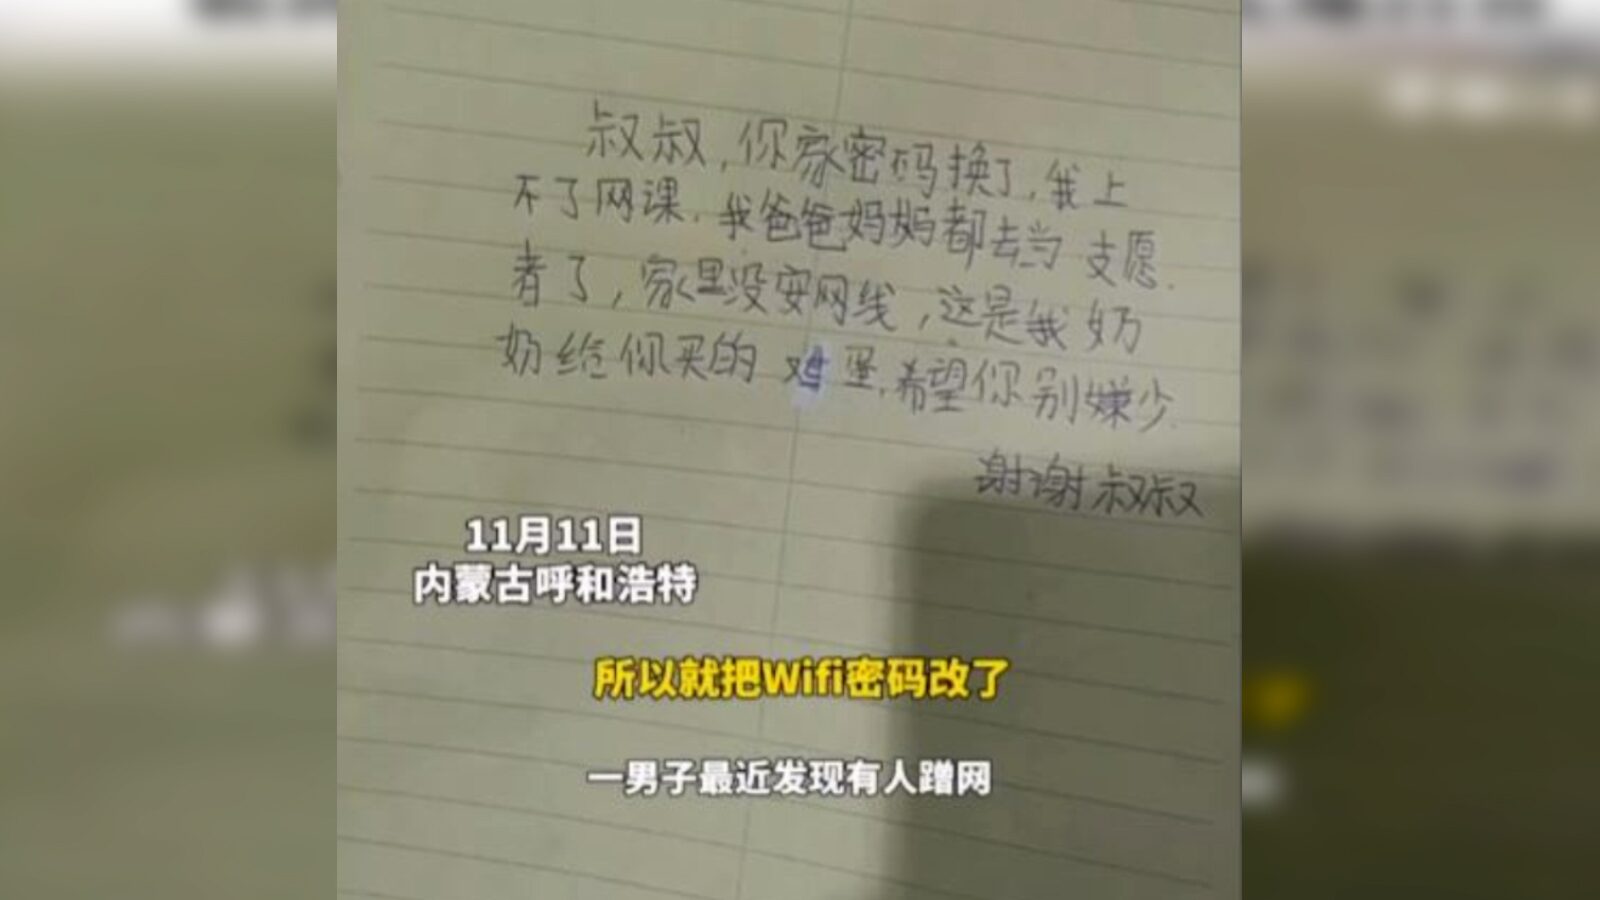 叔叔，你家密码换了，我上
不了网课，我爸爸妈妈都去当支愿
者了，家里没安网线，这是我奶
奶给你买的鸡蛋，希望你别嫌少
谢谢叔叔
11月11日
内蒙古呼和浩特
所以就把Wifi密码改了
一男子最近发现有人蹭网